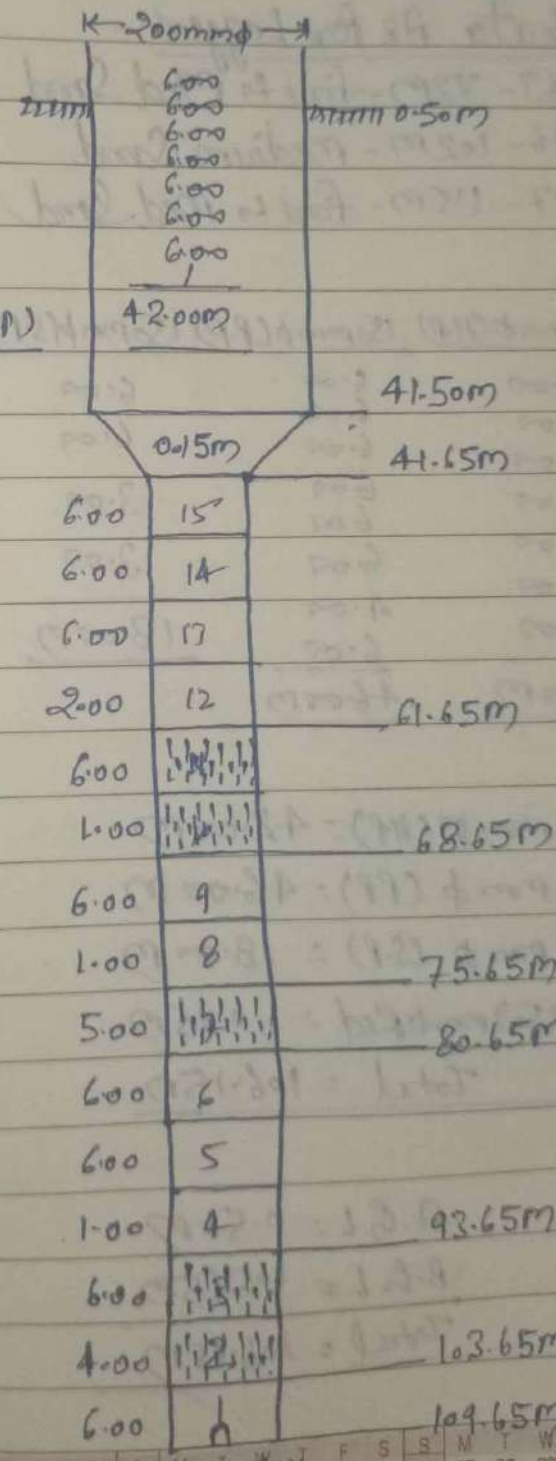 200mmφ
6.00
6.00 0.50m
6.00
6.00
6.00
6.00
6.00
42.00m
41.50m
0.15m 41.65m
6.00 15
6.00 14
6.00 13
2.00 12 61.65m
6.00
1.00 68.65m
6.00 9
1.00 8 75.65m
5.00 80.65m
6.00 6
6.00 5
1.00 4 93.65m
6.00
4.00 2 103.65m
6.00 109.65m
T W T F S S M T W